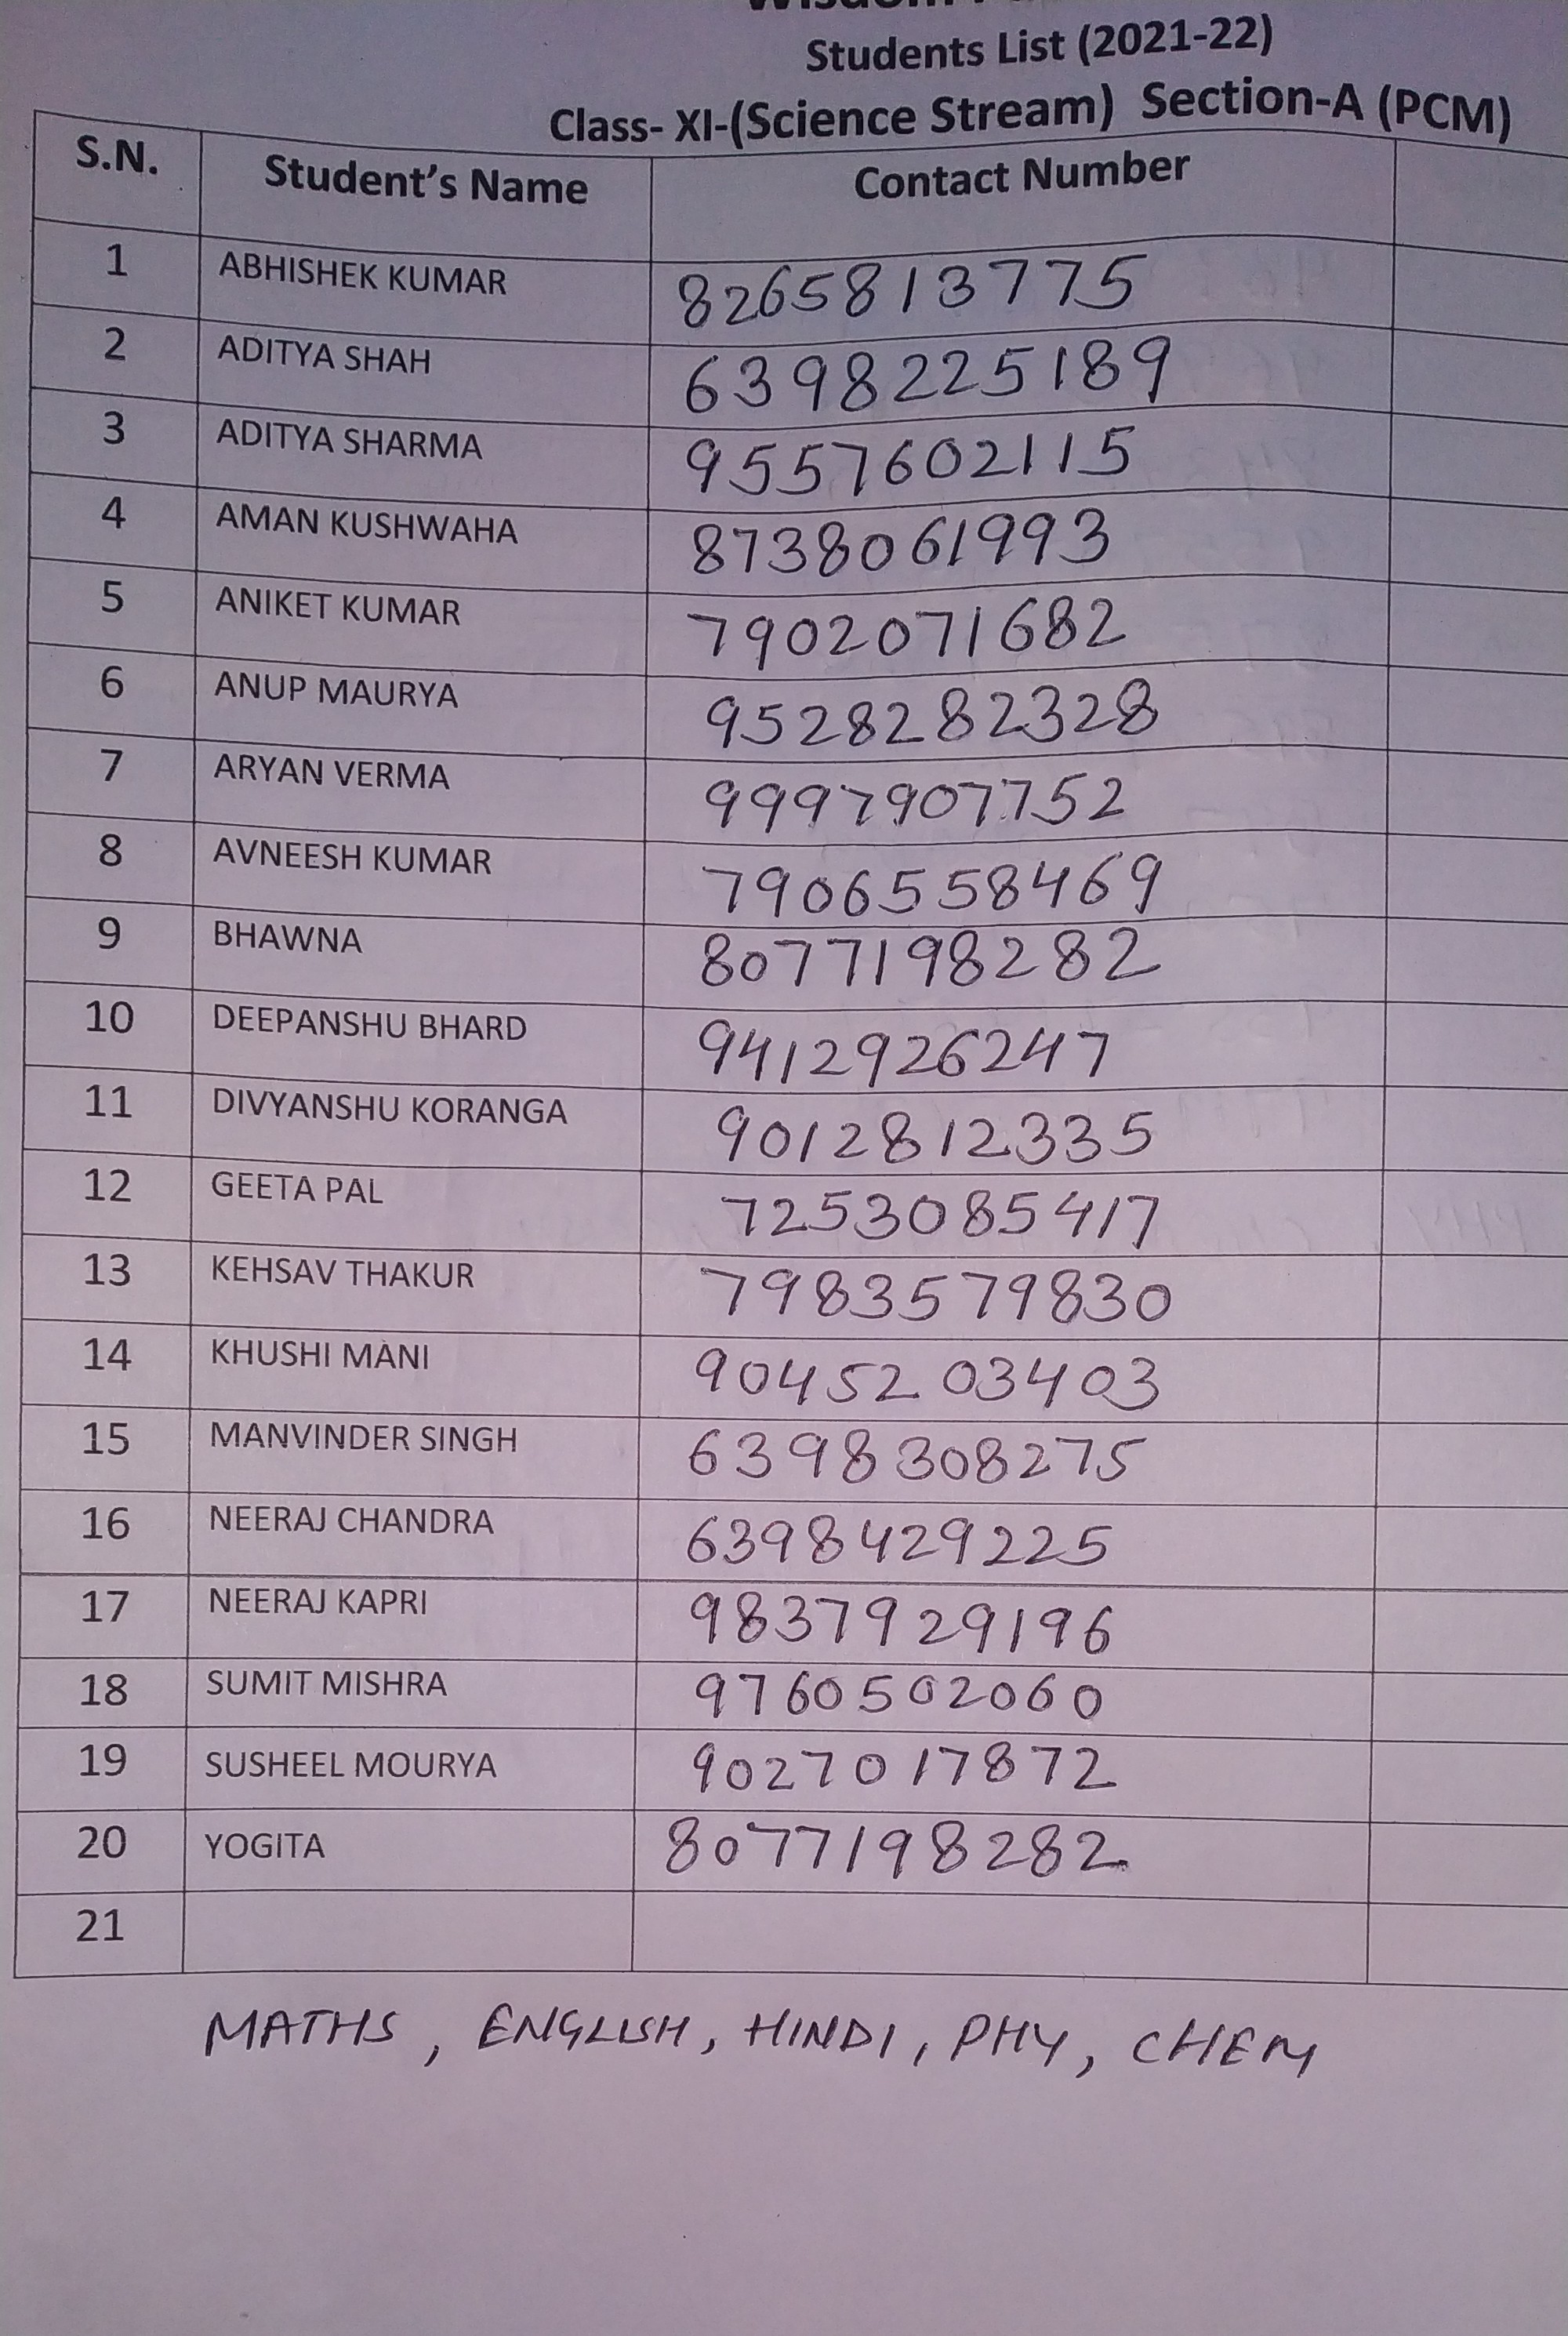 Students List (2021-22)
Class- XI-(Science Stream) Section-A (PCM)
S.N. Student's Name Contact Number
1 ABHISHEK KUMAR 8265813775
2 ADITYA SHAH 6398225189
3 ADITYA SHARMA 9557602115
4 AMAN KUSHWAHA 8738061993
5 ANIKET KUMAR 7902071682
6 ANUP MAURYA 9528282328
7 ARYAN VERMA 9997907752
8 AVNEESH KUMAR 7906558469
9 BHAWNA 8077198282
10 DEEPANSHU BHARD 9412926247
11 DIVYANSHU KORANGA 9012812335
12 GEETA PAL 7253085417
13 KEHSAV THAKUR 7983579830
14 KHUSHI MANI 9045203403
15 MANVINDER SINGH 6398308275
16 NEERAJ CHANDRA 6398429225
17 NEERAJ KAPRI 9837929196
18 SUMIT MISHRA 9760502060
19 SUSHEEL MOURYA 9027017872
20 YOGITA 8077198282
21
MATHS, ENGLISH, HINDI, PHY, CHEM